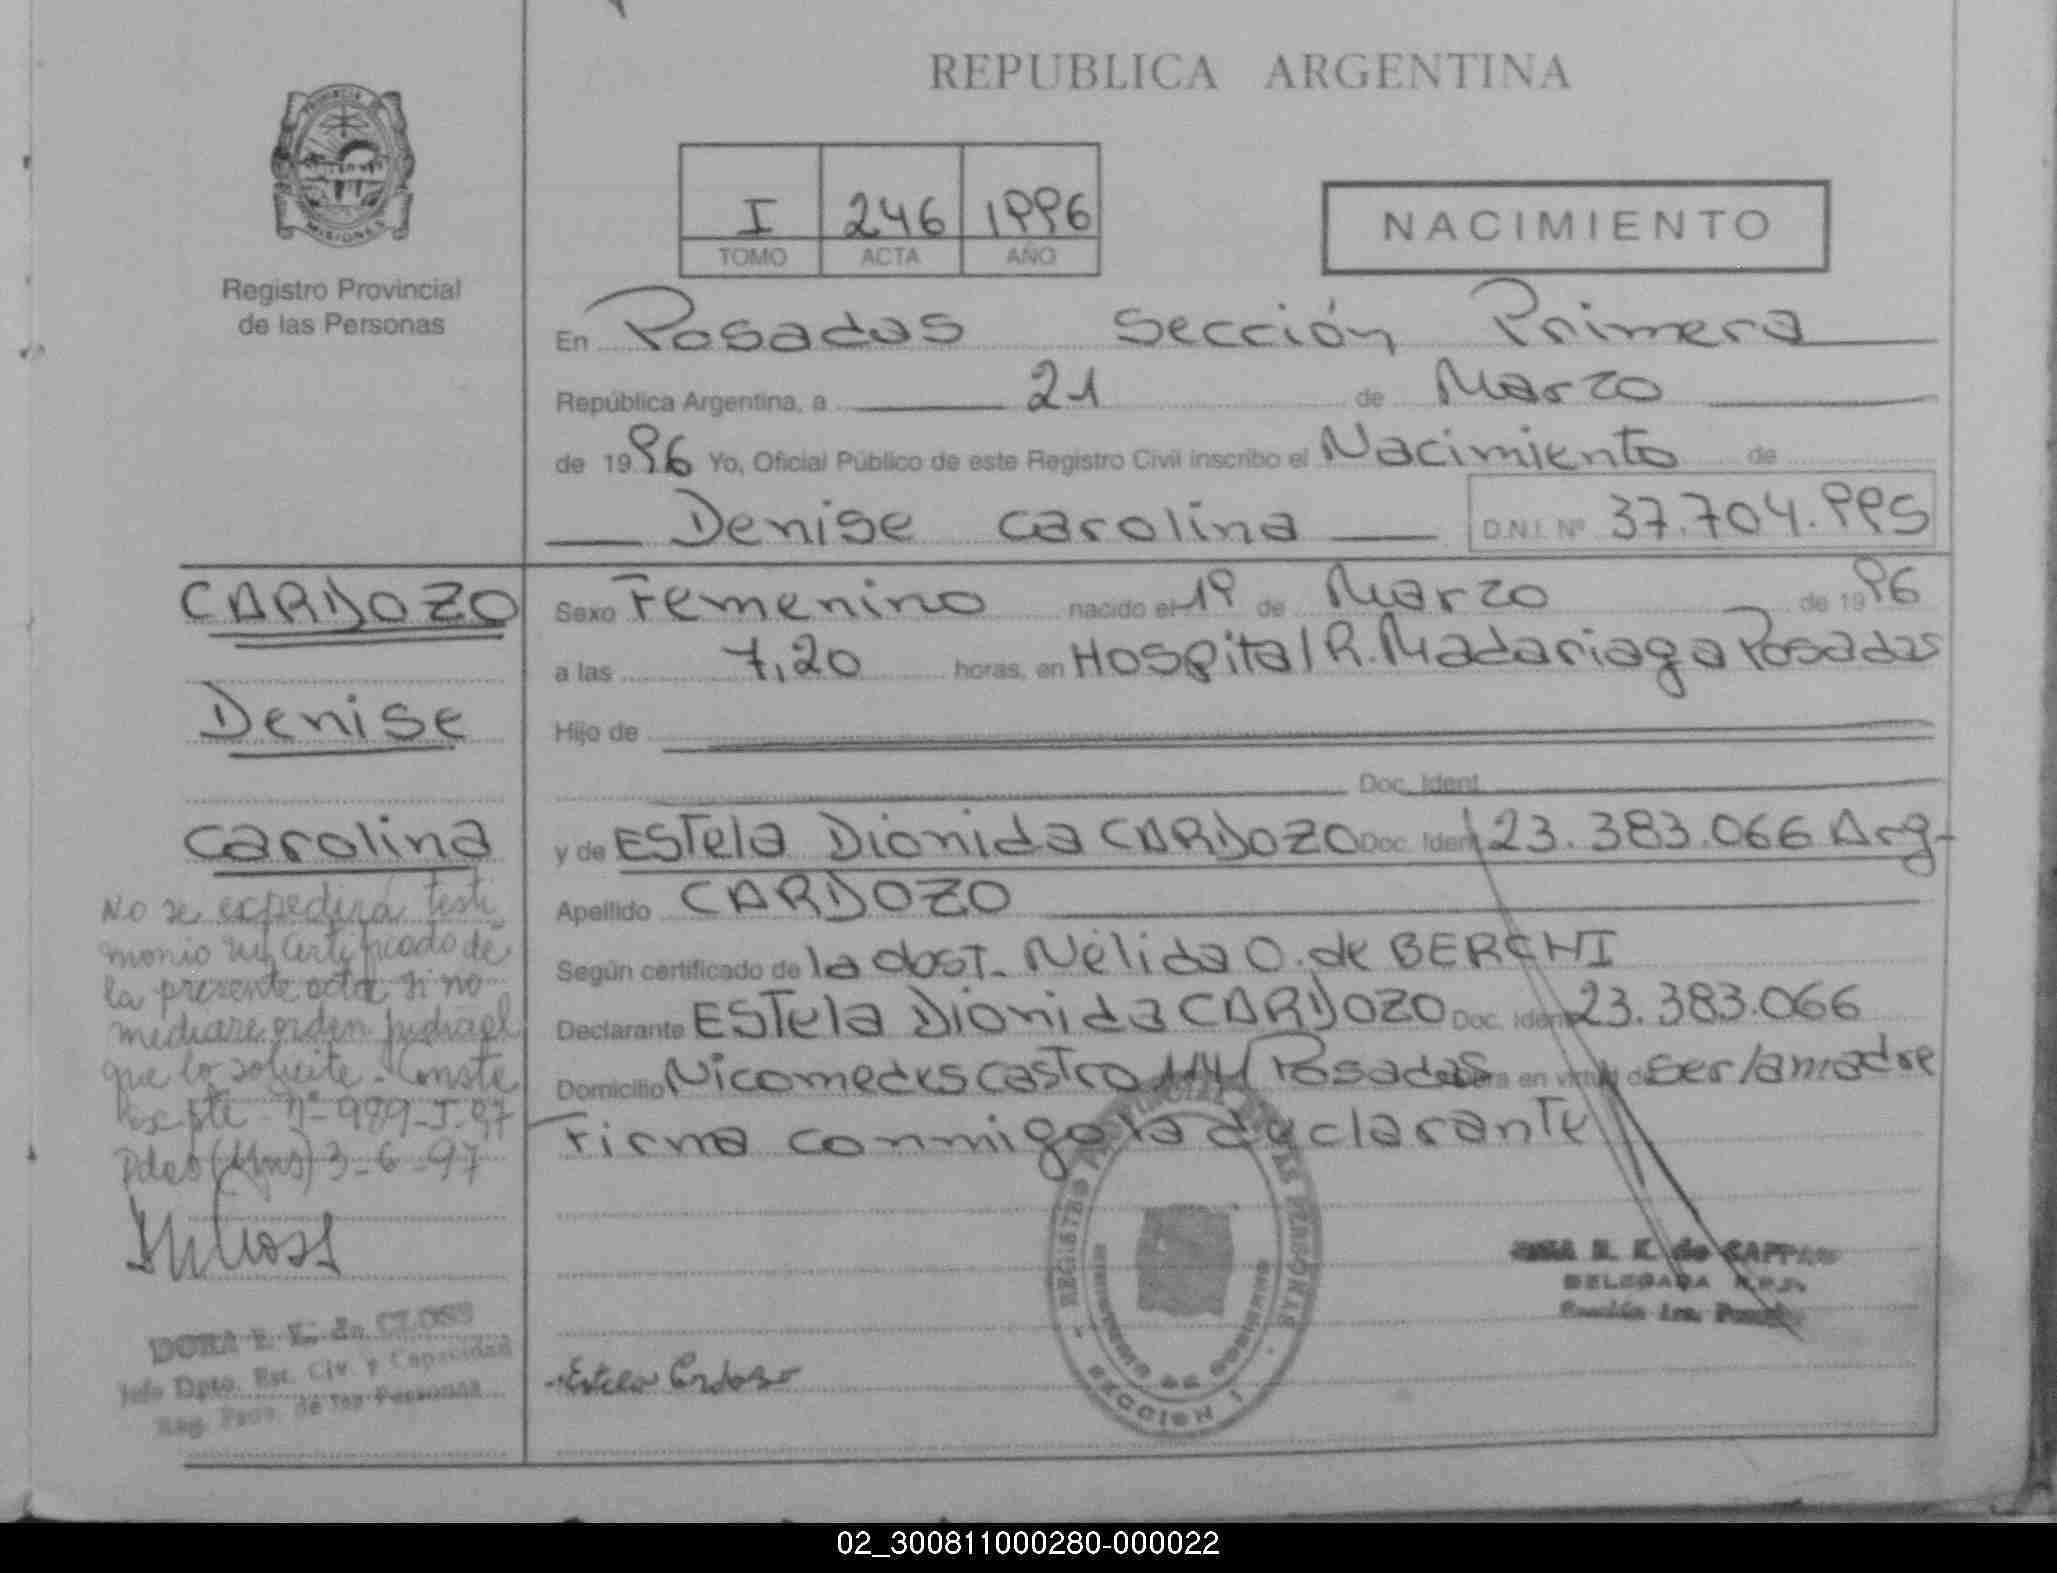 REPUBLICA ARGENTINA
PROVINCIA DE
MISIONES
Registro Provincial
de las Personas
I 246 1996
TOMO ACTA AÑO
NACIMIENTO
En Posadas Sección Primera
República Argentina, a 21 de Marzo
de 1996 Yo, Oficial Público de este Registro Civil inscribo el Nacimiento de
Denise Carolina D.N.I. Nº 37.704.995
CARDOZO
Denise
Carolina
Sexo Femenino nacido el 19 de Marzo de 1996
a las 7,20 horas, en Hospital R. Madariaga Posadas
Hijo de
Doc. Ident.
y de Estela Dionida CARDOZO Doc. Ident 23.383.066 Arg-
Apellido CARDOZO
Según certificado de la obst. Nélida O. de BERCHI
Declarante Estela Dionida CARDOZO Doc. Ident 23.383.066
Domicilio Nicomedes Castro Posadas en virtud de ser la madre
Firma conmigo la declarante
No se expedirá testi
monio ni certificado de
la presente acta si no
mediare orden judicial
que lo solicite. Conste
Expte Nº 989-J-97
Pdas (Mnes) 3-6-97
DORA E. K. de CLOSS
Jefe Dpto. Est. Civ. y Capacidad
Reg. Prov. de las Personas
Estela Cardozo
REGISTRO PROVINCIAL DE LAS PERSONAS
MINISTERIO DE GOBIERNO
SECCION 1
DELEGADA R.P.P.
Sección 1ra. Posadas
02_300811000280-000022